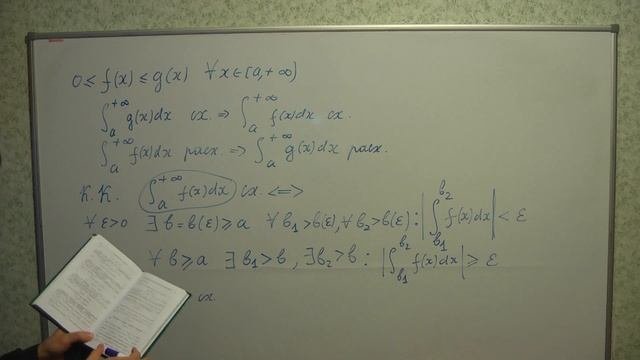 0 ≤ f(x) ≤ g(x) ∀x∈[a,+∞)
∫ₐ^{+∞} g(x)dx сх. ⇒ ∫ₐ^{+∞} f(x)dx сх.
∫ₐ^{+∞} f(x)dx расх. ⇒ ∫ₐ^{+∞} g(x)dx расх.
К.К. ∫ₐ^{+∞} f(x)dx сх. ⟺
∀ε>0 ∃b=b(ε)≥a ∀b₁>b(ε), ∀b₂>b(ε): |∫_{b₁}^{b₂} f(x)dx| < ε
∀b≥a ∃b₁>b, ∃b₂>b: |∫_{b₁}^{b₂} f(x)dx| ≥ ε
сх.